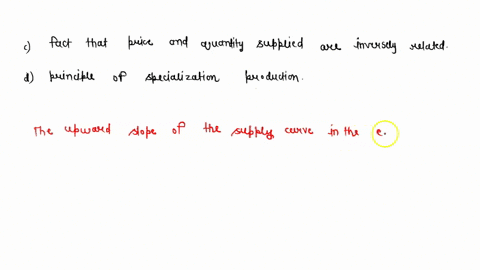 c) fact that price and quantity supplied are inversely related.
d) principle of specialization production.
The upward slope of the supply curve in the e.